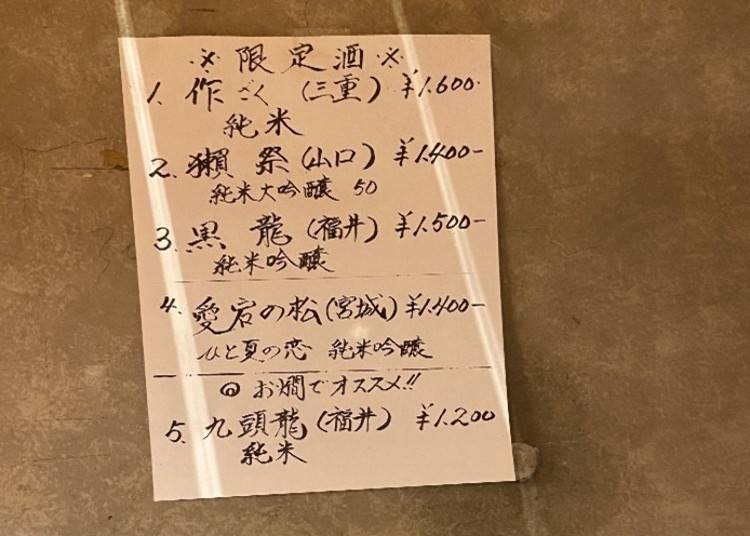 ※ 限定酒 ※
1. 作 ざく (三重) ¥1.600-
純米
2. 獺祭 (山口) ¥1.400-
純米大吟醸 50
3. 黒龍 (福井) ¥1.500-
純米吟醸
4. 愛宕の松 (宮城) ¥1.400-
ひと夏の恋 純米吟醸
◎ お燗でオススメ!!
5. 九頭龍 (福井) ¥1.200
純米